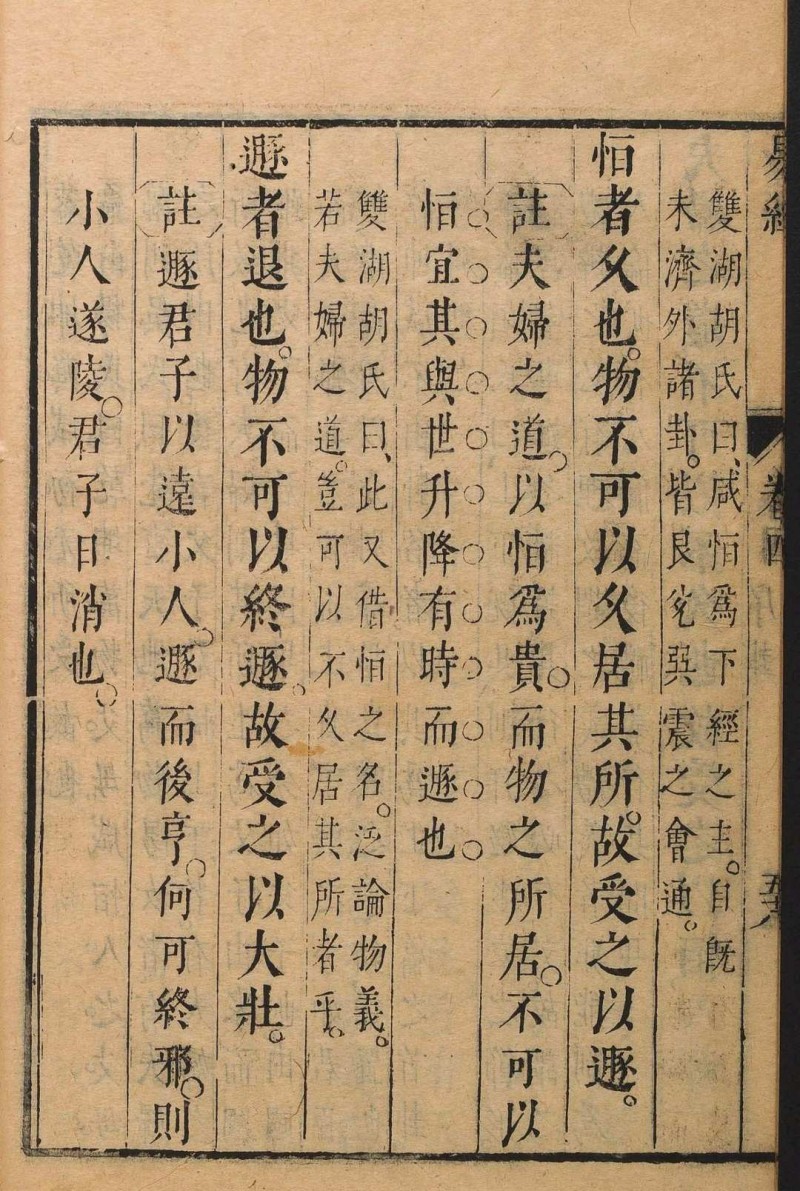 易經 卷四
雙湖胡氏曰、咸恒爲下經之主。自旣
未濟外諸卦。皆艮兌巽震之會通。
恒者久也。物不可以久居其所。故受之以遯。
註夫婦之道。以恒爲貴。而物之所居。不可以
恒宜其與世升降有時而遯也
雙湖胡氏曰、此又借恒之名。泛論物義。
若夫婦之道。豈可以不久居其所者乎。
遯者退也。物不可以終遯。故受之以大壯。
註遯君子以遠小人。遯而後亨。何可終邪。則
小人遂陵。君子日消也。